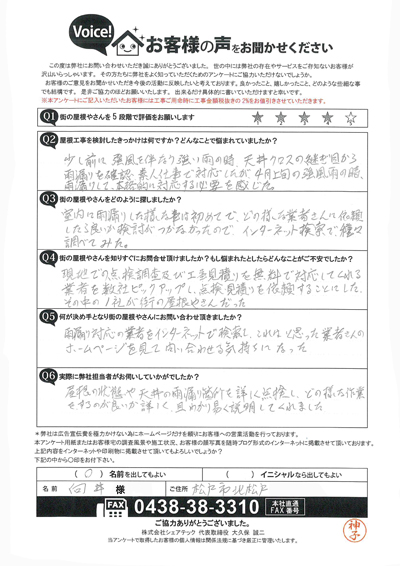 Voice!
お客様の声をお聞かせください
この度は弊社にお問い合わせいただき誠にありがとうございました。世の中には弊社の存在やサービスをご存知ないお客様が
沢山いらっしゃいます。その方たちに弊社をよく知っていただくためのアンケートにご協力いただけないでしょうか。
お客様のご意見をお聞かせいただき今後の活動に反映したいと考えております。良かったこと、嬉しかったこと、どのような些細な事
でも結構です。是非ご協力のほどお願いいたします。出来るだけ具体的に書いていただけますと幸いです。
※本アンケートにご記入いただいたお客様には工事ご用命時に工事金額税抜きの2%をお値引きさせていただきます。
Q1 街の屋根やさんを5段階で評価をお願いします
★ ★ ★ ★ ☆
Q2 屋根工事を検討したきっかけは何ですか?どんなことで悩まれていましたか?
少し前に強風を伴なう強い雨の時、天井クロスの継ぎ目から
雨漏りを確認。素人仕事で対応したが4月上旬の強風雨の時、
雨漏りして、本格的に対応する必要を感じた。
Q3 街の屋根やさんをどのように探しましたか?
室内に雨漏りした様な事は初めてで、どの様な業者さんに依頼
したら良いか検討がつかなかったので、インターネット検索で種々
調べてみた。
Q4 街の屋根やさんを知りすぐにお問合せ頂けましたか?もし悩まれたとしたらどんなことがご不安でしたか?
現地での点検調査及び工事見積りを無料で対応してくれる
業者を数社ピックアップし、点検見積りを依頼することにした。
その中の1社が街の屋根やさんだった
Q5 何が決め手となり街の屋根やさんにお問い合わせ頂きましたか?
雨漏り対応の業者をインターネットで検索し、これはと思った業者さんの
ホームページを見て問い合わせる気持ちになった
Q6 実際に弊社担当者がお伺いしていかがでしたか?
屋根の状態や天井の雨漏り箇所を詳しく点検し、どの様な作業
をするのが良いか詳しく、且わかり易く説明してくれました
*弊社は広告宣伝費を極力かけない為にホームページだけを頼りにお客様への営業活動を行っております。
本アンケート用紙またはお客様宅の調査風景や施工状況、お客様の顔写真を随時ブログ形式のインターネットに掲載させて頂いております。
上記内容をインターネットや印刷物に掲載させて頂いてもよろしいでしょうか?
下記の中から〇印をお付け下さい。
( 〇 ) 名前を出してもよい ( ) イニシャルなら出してもよい
名前 向井 様 ご住所 松戸市北松戸
FAX 0438-38-3310 本社直通 FAX番号
ご協力ありがとうございました。
株式会社シェアテック 代表取締役 大久保 誠二
当アンケートで取得したお客様の個人情報は関係法規に基づき厳正に管理いたします。
神子